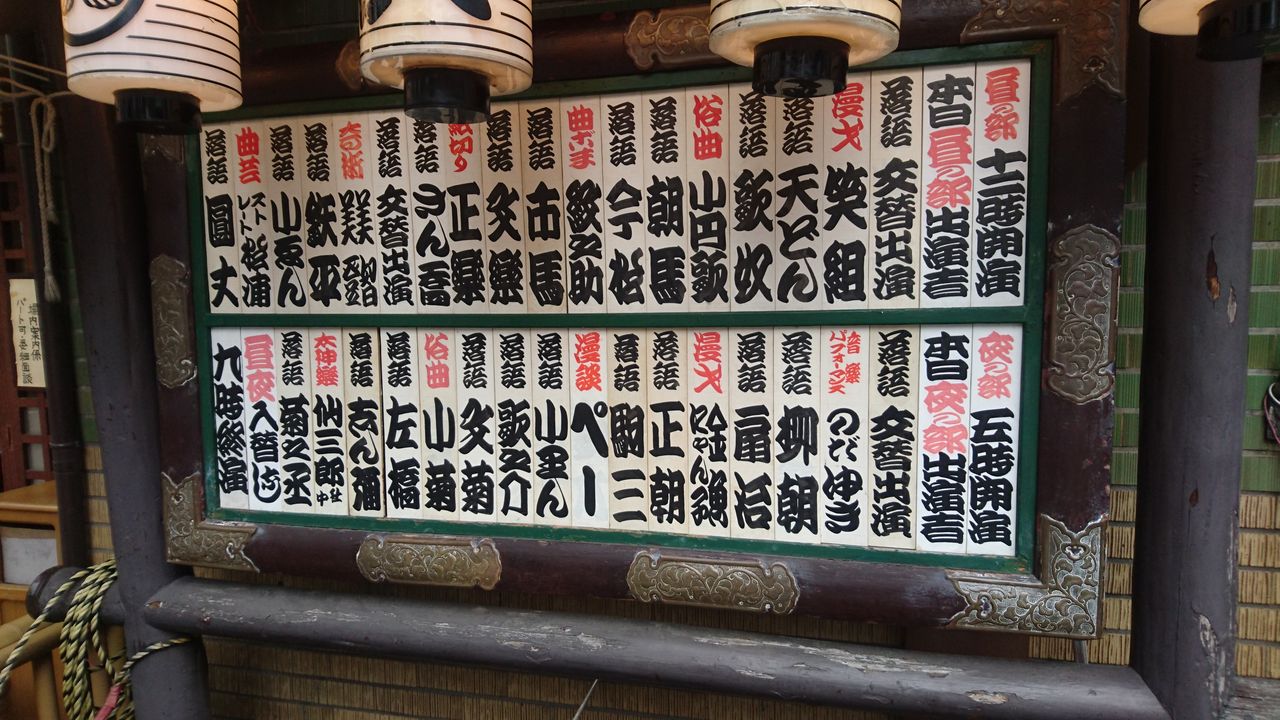 昼の部 十二時開演
本日昼の部出演者
落語 交替出演
漫才 笑組
落語 天どん
落語 歌奴
俗曲 小円歌
落語 朝馬
落語 今松
曲ごま 紋之助
落語 市馬
落語 文楽
紙切り 正楽
落語 さん喬
落語 交替出演
奇術
落語 鉄平
落語 小ゑん
曲芸 ストレート松浦
落語 圓丈
夜の部 五時開演
本日夜の部出演者
落語 交替出演
音楽パフォーマンス のだゆき
落語 柳朝
落語 一之輔
漫才 にゃん金魚
落語 正朝
落語 駒三
漫談 ペー
落語 小里ん
落語 歌之介
落語 文菊
俗曲 小菊
落語 左橋
落語 志ん彌
太神楽 仙三郎社中
落語 菊之丞
昼夜入替なし
九時終演
場内案内係
パート可・委細面談